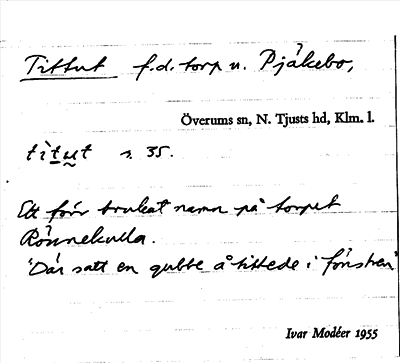 Tittut f.d. torp u. Pjåkebo,
Överums sn, N. Tjusts hd, Klm. l.
titut s. 35.
Ett förr brukat namn på torpet
Rönnekulla.
"Där satt en gubbe å tittede i fönstren"
Ivar Modéer 1955